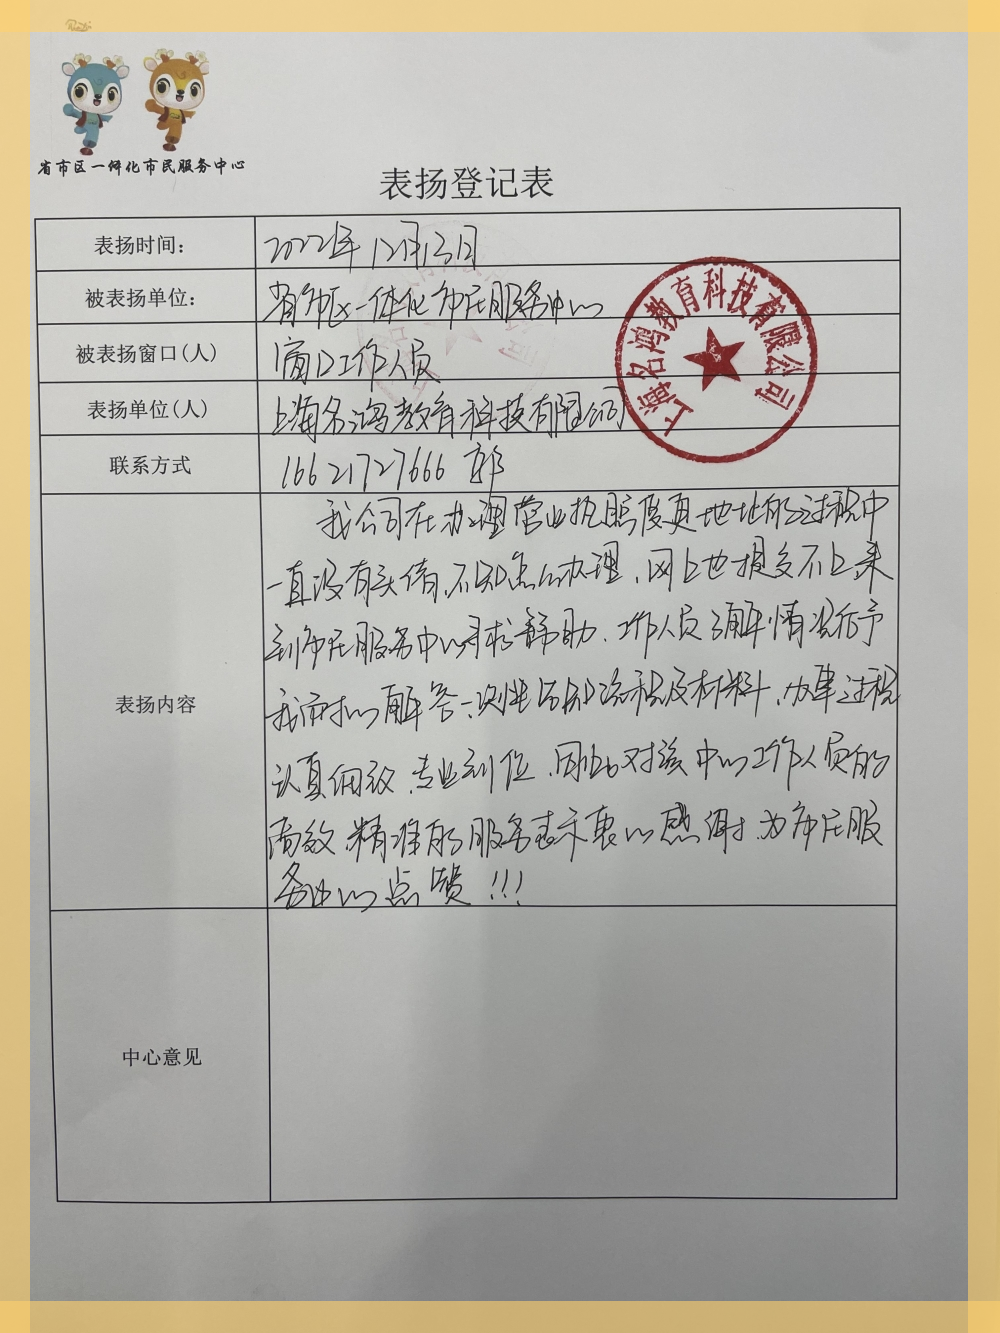 省市区一体化市民服务中心
表扬登记表
表扬时间:
2022年12月13日
被表扬单位:
省市区一体化市民服务中心
被表扬窗口(人)
窗口工作人员
表扬单位(人)
上海名鸿教育科技有限公司
上海名鸿教育科技有限公司
联系方式
16621727666 郭
表扬内容
我公司在办理营业执照变更地址的过程中
一直没有头绪,不知怎么办理,网上也提交不上来
到市民服务中心寻求帮助,工作人员了解情况给予
我而扣心解答,一次性告知流程及材料,办事过程
认真细致,专业到位,同时对该中心工作人员的
高效精准的服务表示衷心感谢,为市民服
务中心点赞!!!
中心意见